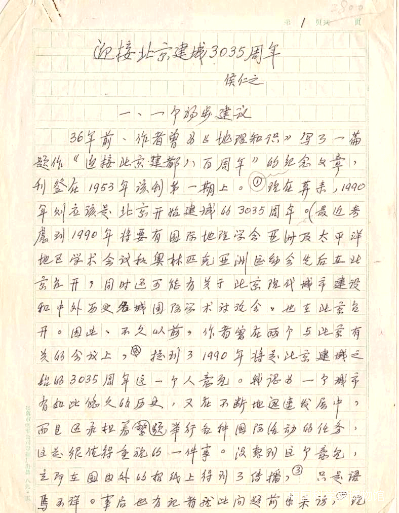 第 1 页
迎接北京建城3035周年
侯仁之
一、一个初步建议
36年前、作者曾为《地理知识》写了一篇
题作“迎接北京建都八百周年”的纪念文章,
刊登在1953年该刊第一期上。①现在算来,1990
年则应该是北京开始建城的3035周年。(最近考
虑到1990年将要有国际地理学会亚洲及太平洋
地区学术会议和奥林匹克亚洲运动会先后在北
京召开,同时还可能有关于北京现代城市建设
和中外历史名城国际学术讨论会,也在北京召
开。因此、不久以前,作者曾在两个与北京有
关的会议上,②提到了1990年将是北京建城之
始的3035周年这一个人意见。我认为一个城市
有如此悠久的历史,又在不断地迅速发展中,
而且还承担着举行各种国际活动的任务,
这是很值得重视的一件事。没想到这个意见,
立即在国内外的报纸上得到了传播,③只是语
焉不详。事后也有记者就此问题前来采访,就